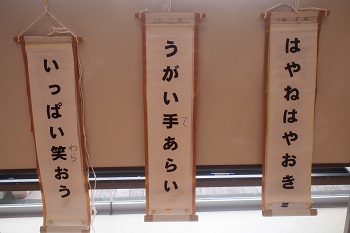 はやねはやおき
うがい手あらい
て
いっぱい笑おう
わら